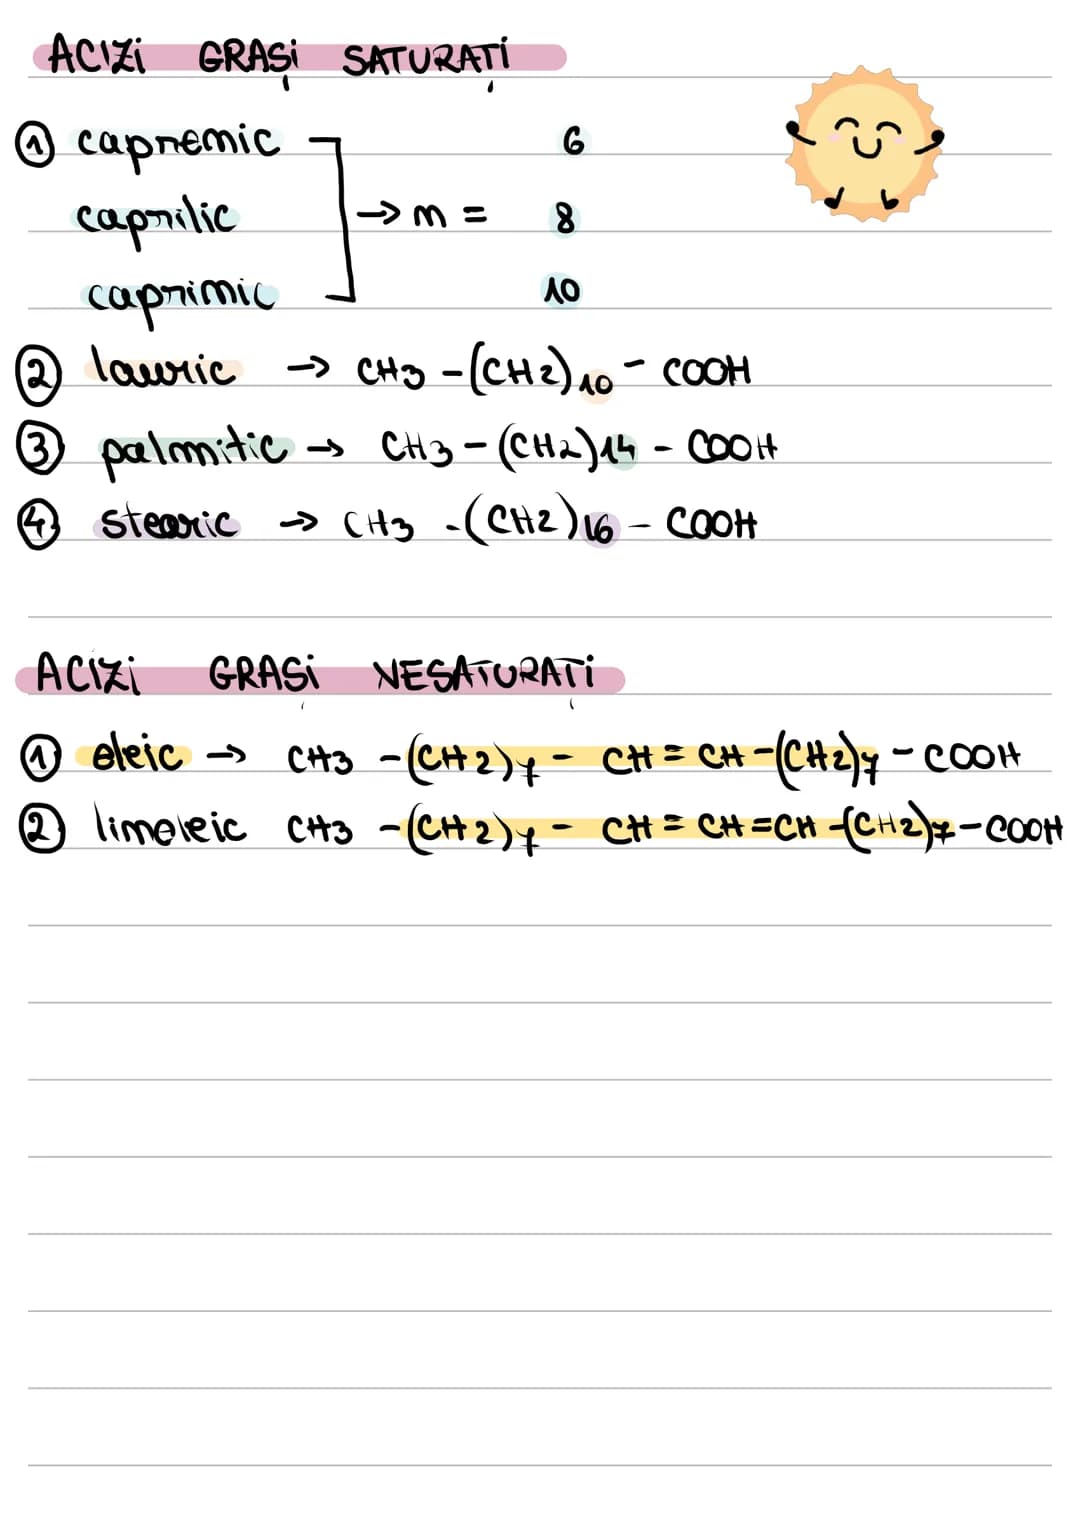 ACIZI GRAȘI SATURAȚI
① capronic ] 6
caprilic → n = 8
caprinic 10
② lauric → CH3 - (CH2)10 - COOH
③ palmitic → CH3 - (CH2)14 - COOH
④ stearic → CH3 - (CH2)16 - COOH
ACIZI GRAȘI NESATURAȚI
① oleic → CH3 - (CH2)7 - CH = CH - (CH2)7 - COOH
② linoleic CH3 - (CH2)7 - CH = CH = CH - (CH2)7 - COOH